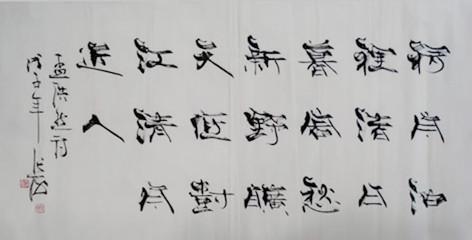 移舟泊
煙渚日
暮客愁
新野曠
天低樹
江清月
近人
孟浩然詩
戊子年